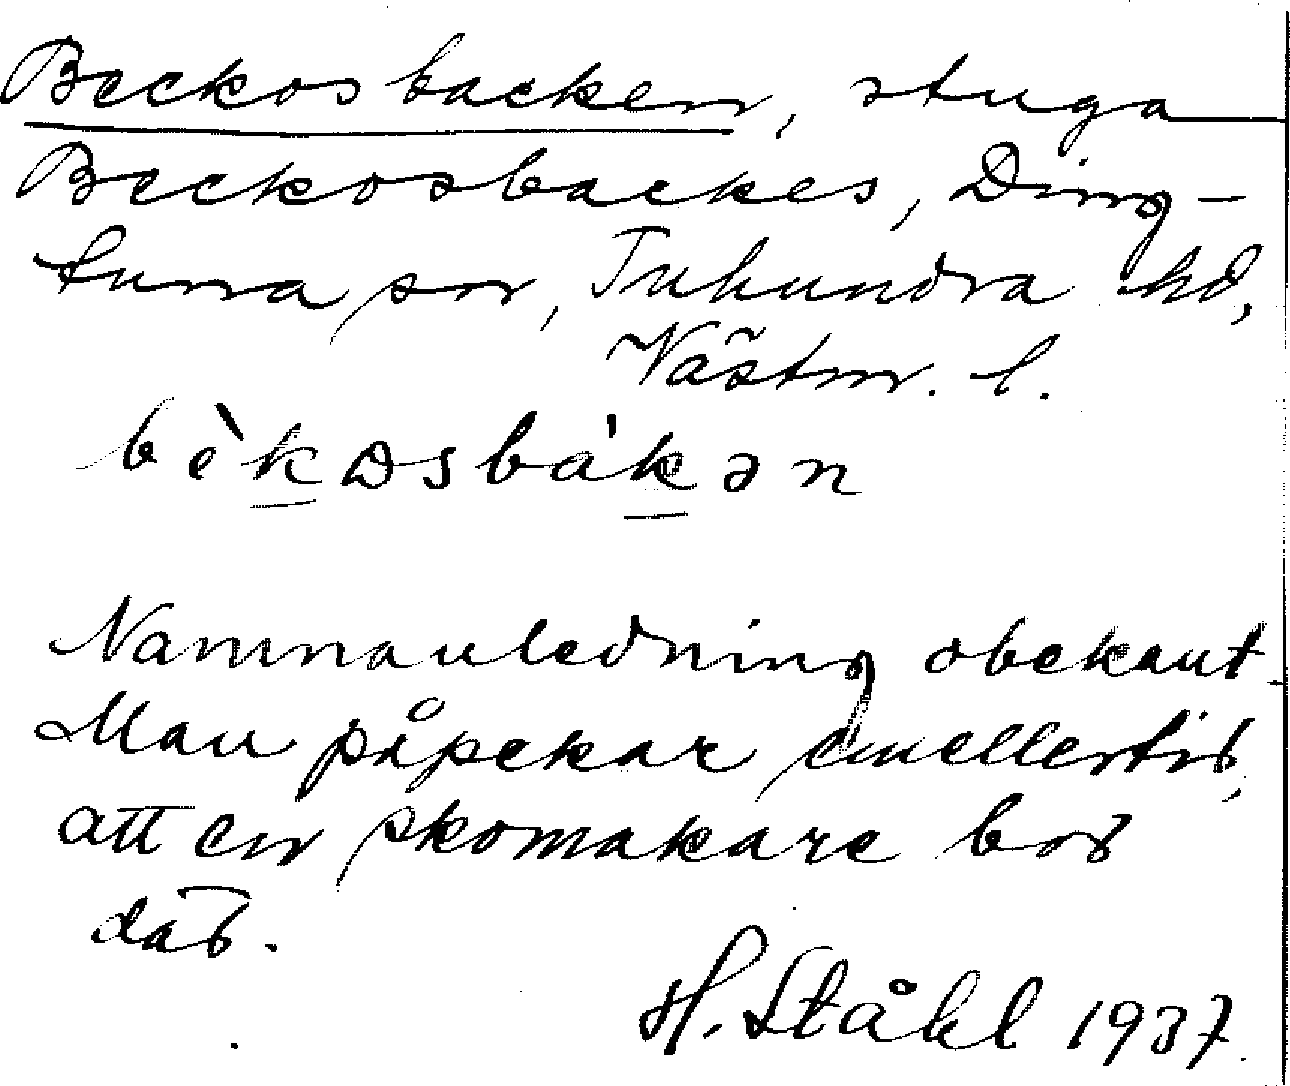 Beckosbacken, stuga
Beckosbackes, Ding-
tuna sn, Tuhundra hd,
Västm. l.
bèkɷsbàkən
Namnavledning obekant.
Man påpekar emellertid,
att en skomakare bor
där.
H. Ståhl 1937.